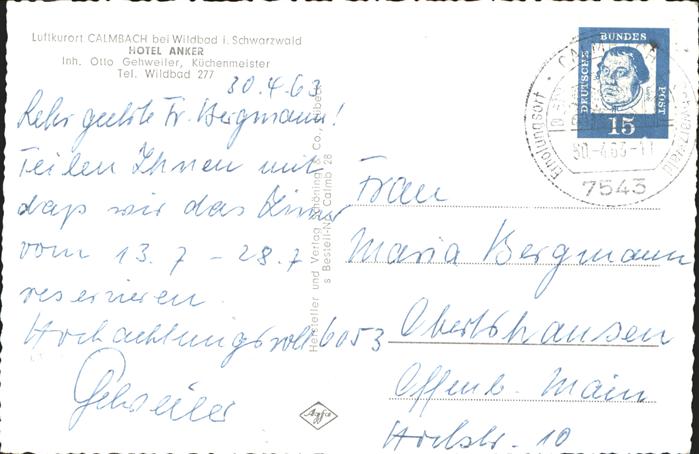 Luftkurort CALMBACH bei Wildbad i. Schwarzwald
HOTEL ANKER
Inh. Otto Gehweiler, Küchenmeister
Tel. Wildbad 277
30.4.63
Sehr geehrte Fr. Bergmann!
Teilen Ihnen mit
daß wir das Zimmer
vom 13.7 - 28.7
reservieren.
Hochachtungsvoll
Gehweiler
Hersteller und Verlag Schöning & Co., Lübeck
s Bestell-Nr. Calmb 28
Agfa
DEUTSCHE
BUNDES
POST
15
Erholungsort
30-4.63-11
7543
Frau
Maria Bergmann
6053 Obertshausen
Offenb. Main
Hochstr. 10